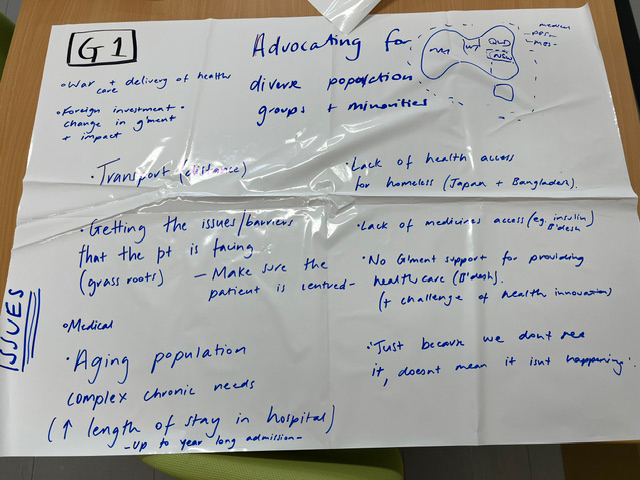 G1
Advocating for
diverse popation
groups + minorities
WA
NT
QLD
NSW
medical
• War + delivery of health
care
• Foreign investment •
change in g'ment
+ impact
• Transport (distance)
• Getting the issues/barriers
that the pt is facing
(grass roots) — Make sure the
patient is centred-
ISSUES
• Medical
• Aging population
complex chronic needs
(↑ length of stay in hospital)
- up to year long admission-
• Lack of health access
for homeless (Japan + Bangladesh).
• Lack of medicines access (eg. insulin)
B'desh
• No G'ment support for providing
healthcare (B'desh).
(+ challenge of health innovation)
• Just because we dont see
it, doesnt mean it isnt happening.